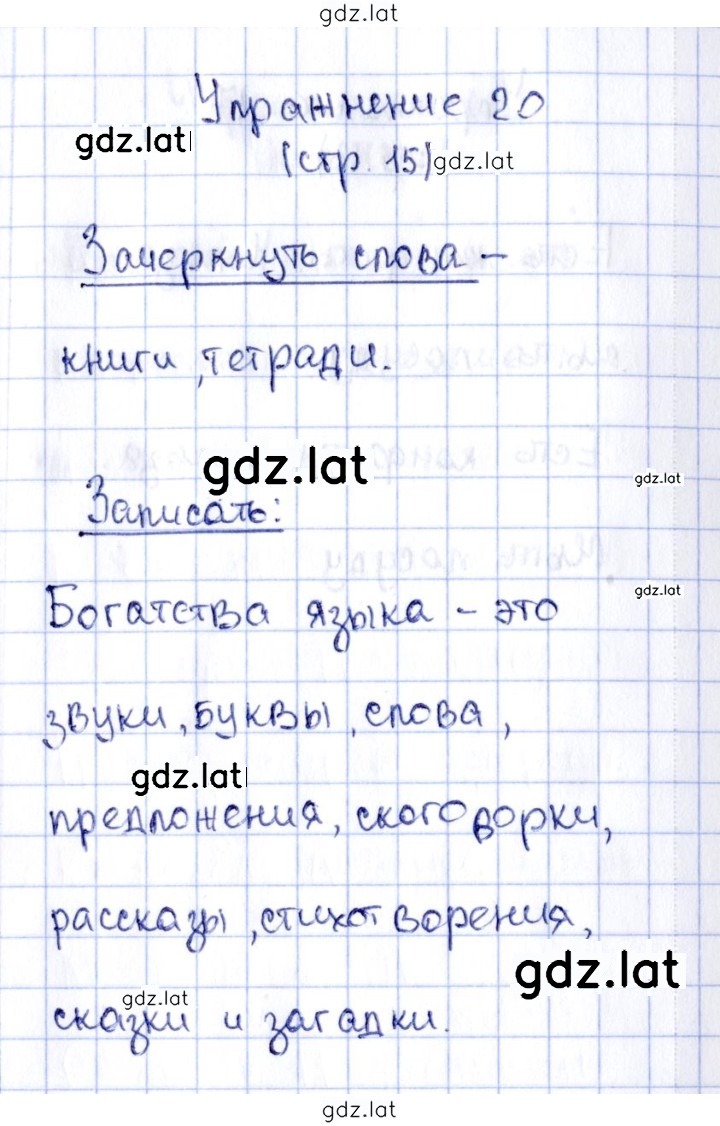 gdz.lat
Упражнение 20
gdz.lat
(стр. 15) gdz.lat
Зачеркнуть слова –
книги, тетради.
gdz.lat
gdz.lat
Записать:
gdz.lat
Богатства языка – это
звуки, буквы, слова,
gdz.lat
предложения, скоговорки,
рассказы, стихотворения,
gdz.lat
gdz.lat
сказки и загадки.
gdz.lat